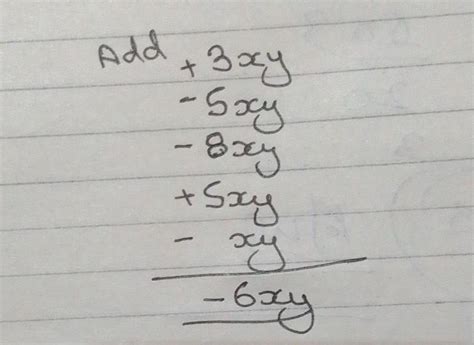 Add +3xy
-5xy
-8xy
+5xy
- xy
-6xy